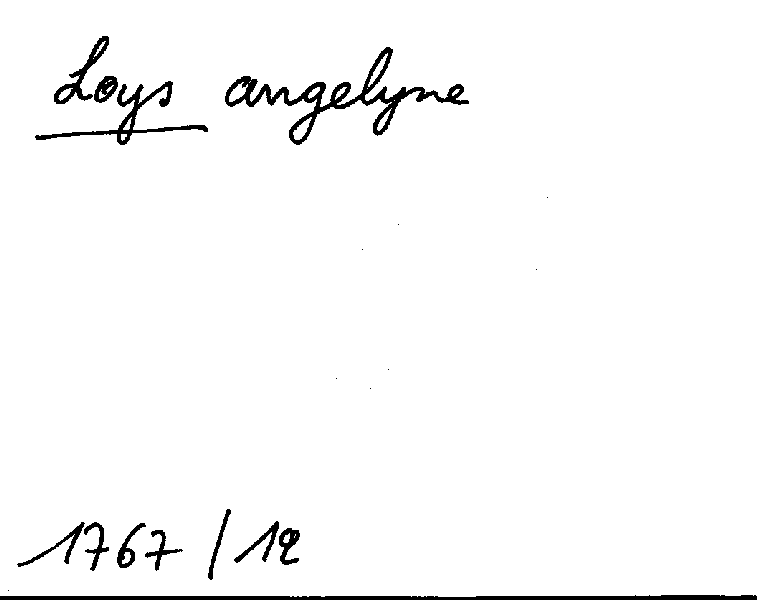 Loys angelyne
1767 / 12